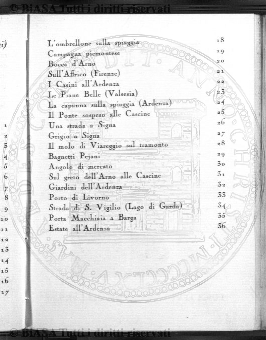 L'ombrellone sulla spiaggia 18
Campagna piemontese 19
Bocca d'Arno 20
Sull'Affrico (Firenze) 21
I Casini all'Ardenza 22
Le Piane Belle (Valsesia) 23
La capanna sulla spiaggia (Ardenza) 24
Il Ponte sospeso alle Cascine 25
Una strada a Signa 26
Grigio a Signa 27
Il molo di Viareggio sul tramonto 28
Bagnetti Pejani 29
Angolo di mercato 30
Sul greto dell'Arno alle Cascine 31
Giardini dell'Ardenza 32
Porto di Livorno 33
Strada di S. Vigilio (Lago di Garda) 34
Porta Macchiaia a Barga 35
Estate all'Ardenza 36
1
2
3
4
5
6
7
8
9
10
11
12
13
14
15
16
17
© BIASA Tutti i diritti riservati